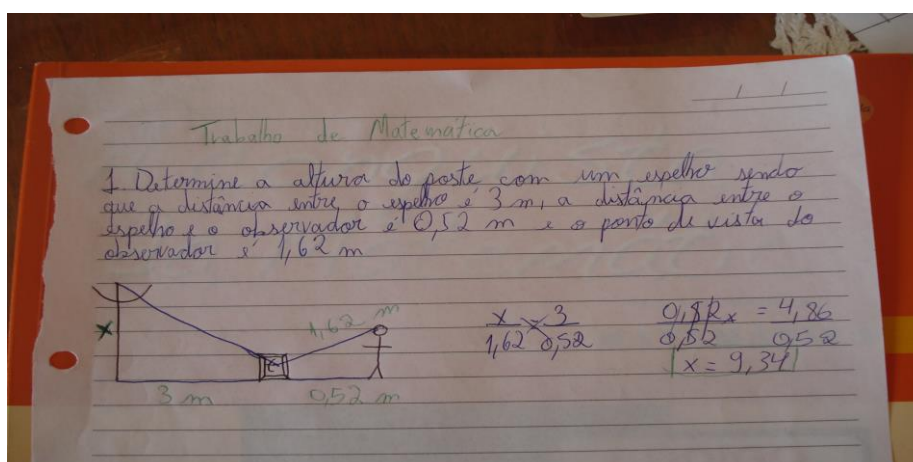 / /
Trabalho de Matemática
1 Determine a altura do poste com um espelho sendo
que a distância entre o espelho é 3 m, a distância entre o
espelho e o observador é 0,52 m e o ponto de vista do
observador é 1,62 m
x
1,62 m
3 m
0,52 m
x 3
1,62 0,52
0,52x = 4,86
0,52 0,52
x = 9,34